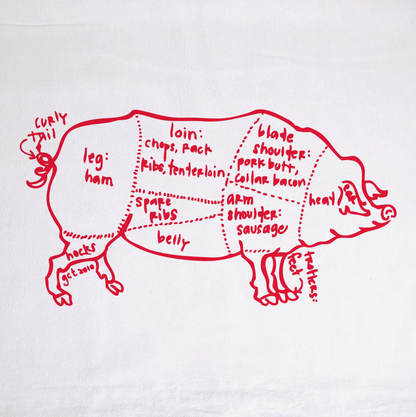 curly
tail
leg:
ham
loin:
chops, rack
ribs, tenterloin
blade
shoulder:
pork butt,
collar bacon
head
ear
spare
ribs
arm
shoulder:
sausage
belly
hocks
gct 2010
trotters:
feet